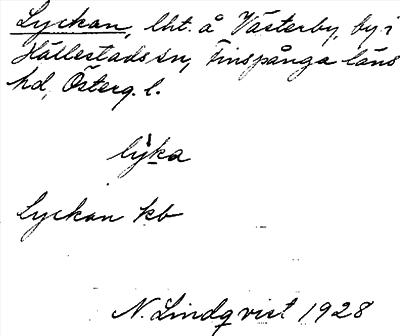 Lyckan, lht. å Västerby, by i
Hällestads sn, Finspånga läns
hd, Österg. l.
lỳka
Lyckan kb
N. Lindqvist 1928